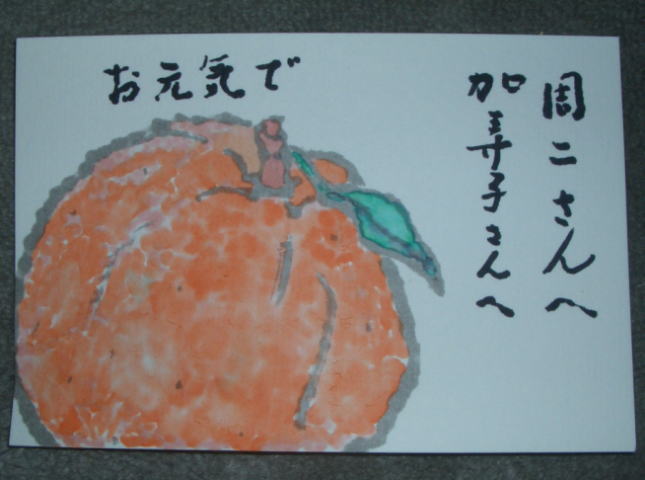 周二さんへ
加寿子さんへ
お元気で